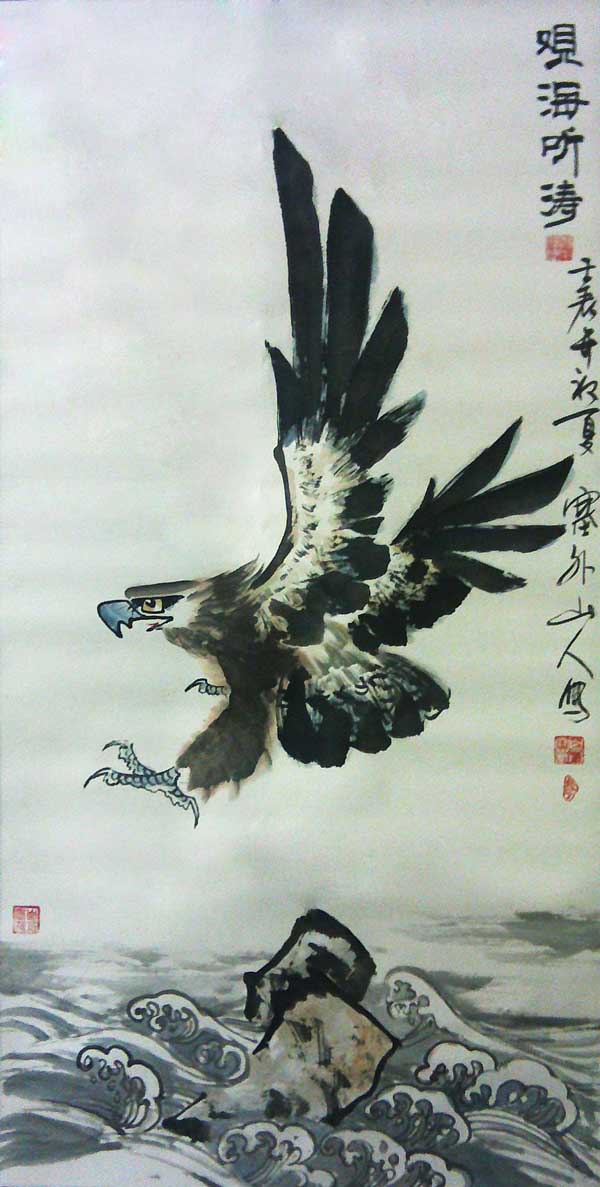 观海听涛
壬辰年初夏 塞外山人写